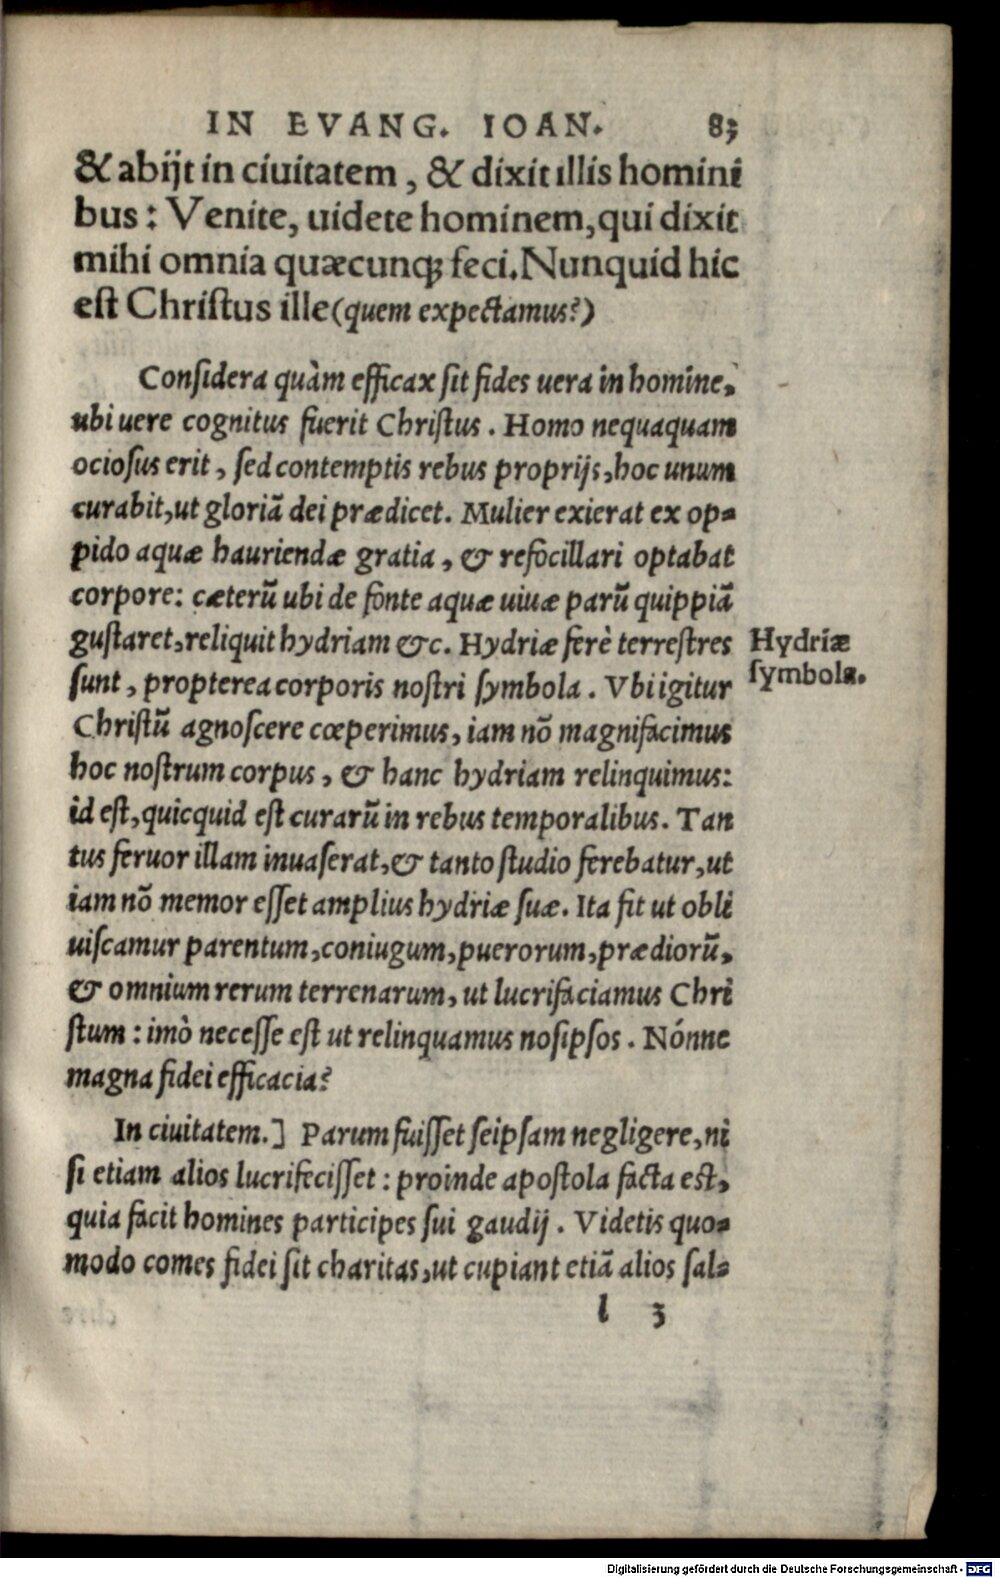 IN EVANG. IOAN. 83
& abijt in ciuitatem, & dixit illis homini
bus: Venite, uidete hominem, qui dixit
mihi omnia quæcunq; feci. Nunquid hic
est Christus ille (quem expectamus?)
Considera quàm efficax sit fides uera in homine,
ubi uere cognitus fuerit Christus. Homo nequaquam
ociosus erit, sed contemptis rebus proprijs, hoc unum
curabit, ut gloriā dei prædicet. Mulier exierat ex op-
pido aquæ hauriendæ gratia, & refocillari optabat
corpore: cæterū ubi de fonte aquæ uiuæ parū quippiā
gustaret, reliquit hydriam &c. Hydriæ ferè terrestres
sunt, propterea corporis nostri symbola. Vbi igitur
Hydriæ
symbola.
Christū agnoscere cœperimus, iam nō magnifacimus
hoc nostrum corpus, & hanc hydriam relinquimus:
id est, quicquid est curarū in rebus temporalibus. Tan
tus feruor illam inuaserat, & tanto studio ferebatur, ut
iam nō memor esset amplius hydriæ suæ. Ita fit ut obli
uiscamur parentum, coniugum, puerorum, prædiorū,
& omnium rerum terrenarum, ut lucrifaciamus Chri
stum: imò necesse est ut relinquamus nosipsos. Nónne
magna fidei efficacia?
In ciuitatem.] Parum fuisset seipsam negligere, ni
si etiam alios lucrifecisset: proinde apostola facta est,
quia facit homines participes sui gaudij. Videtis quo-
modo comes fidei sit charitas, ut cupiant etiā alios sal-
l 3
Digitalisierung gefördert durch die Deutsche Forschungsgemeinschaft - DFG